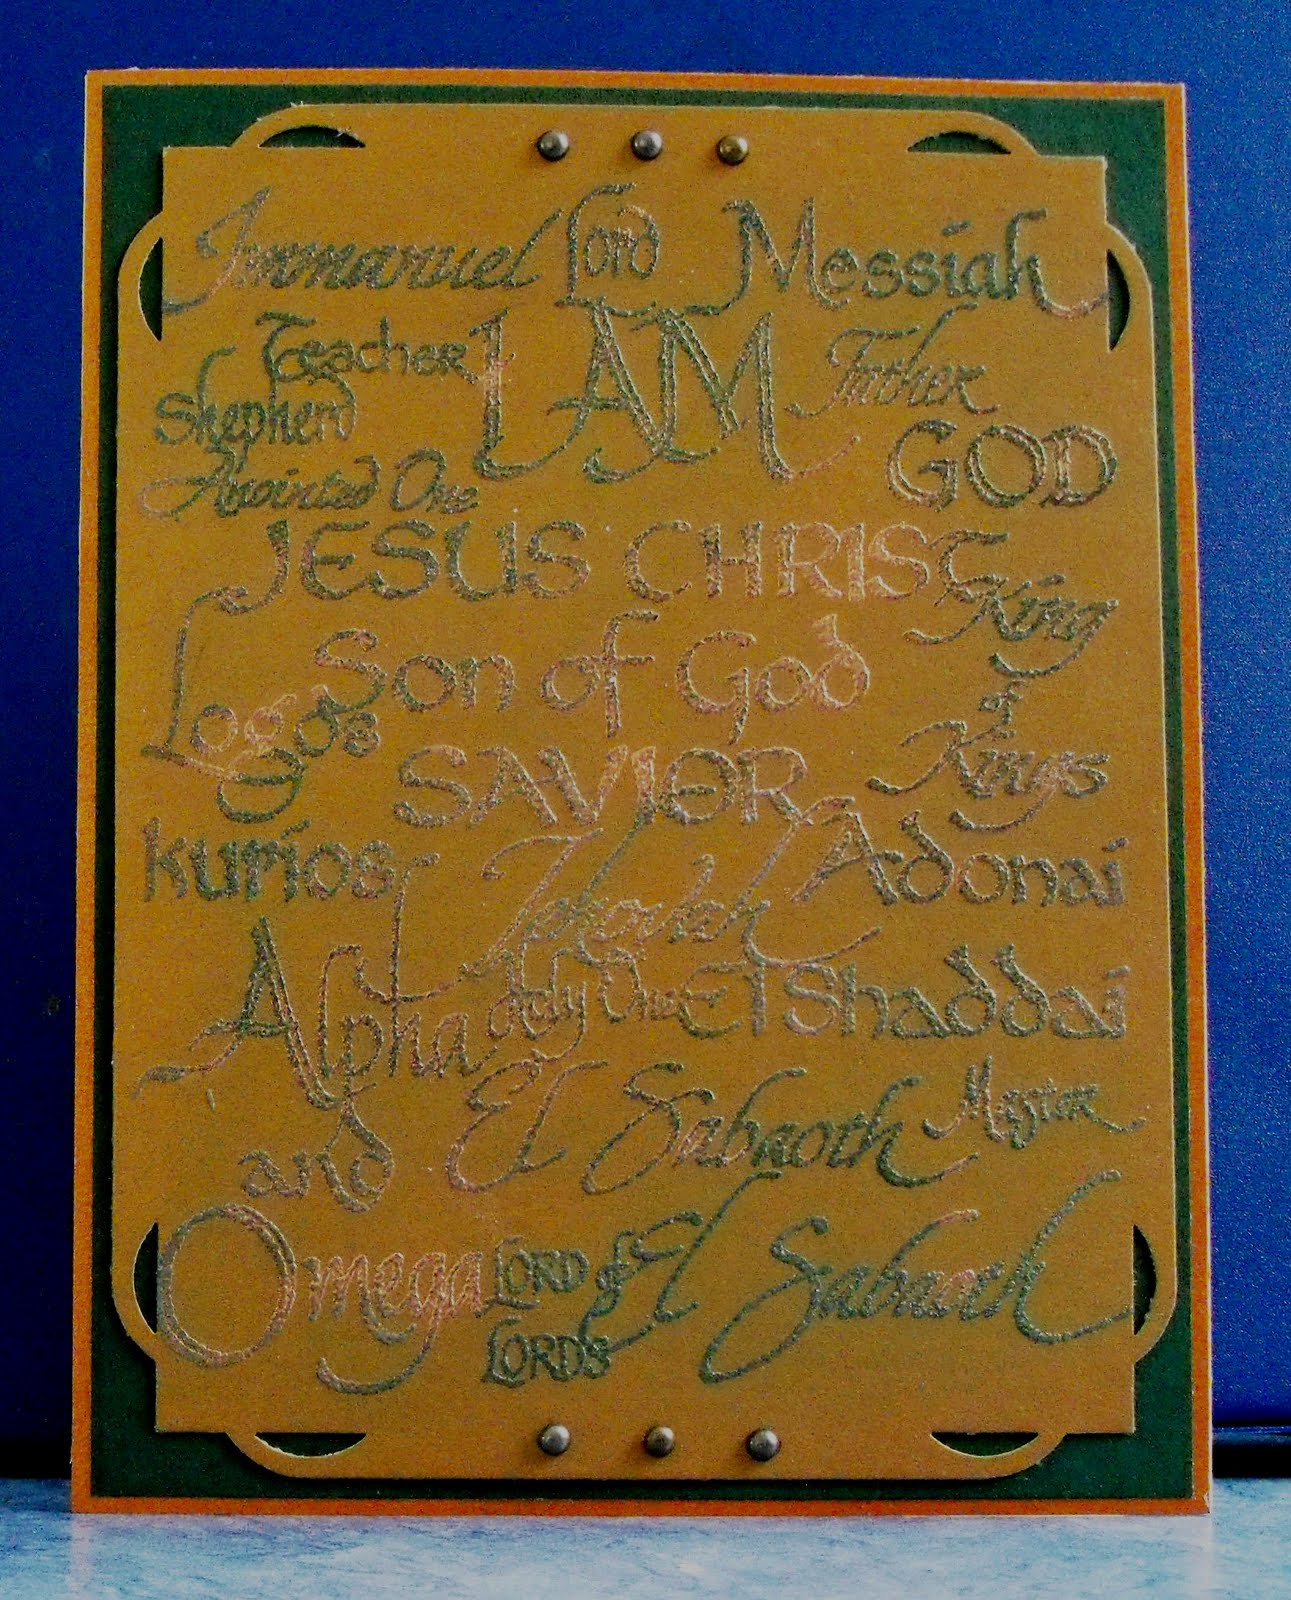 Immanuel Lord Messiah
Teacher I AM Father
Shepherd GOD
Anointed One
JESUS CHRIST King
Son of God of
Logos Kings
SAVIOR
kurios Jehovah Adonai
Alpha Holy One El Shaddai
El Sabaoth Master
and
Omega LORD of El Sabaoth
LORDS